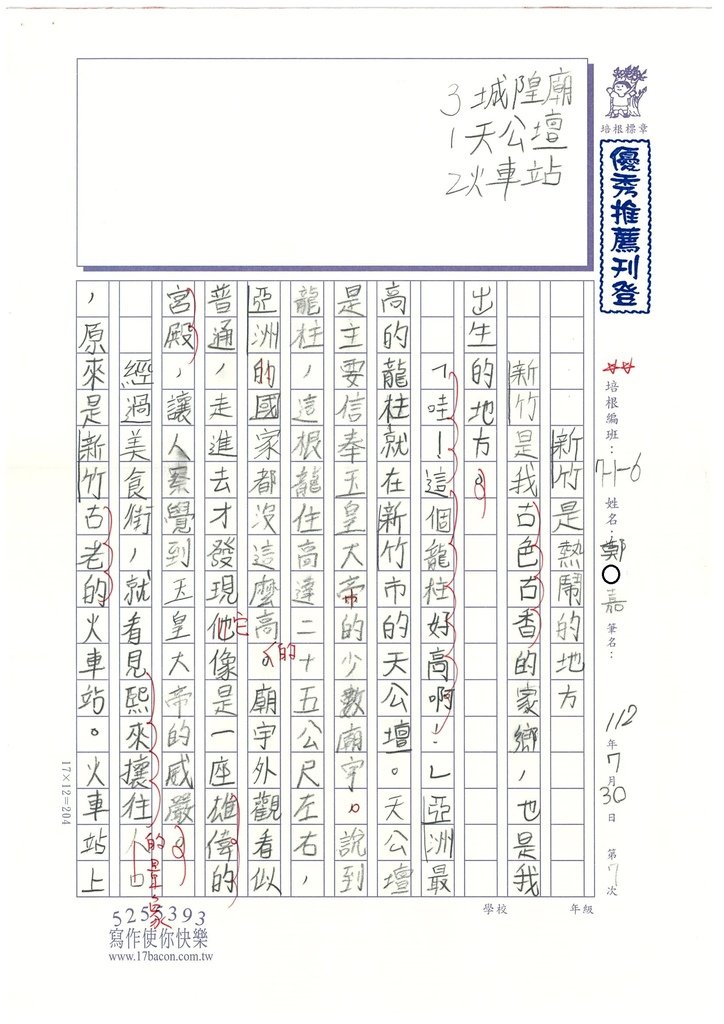 3 城隍廟
1 天公壇
2 火車站
培根標章
優秀推薦刊登
培根編班：7H-6 姓名：鄭○嘉 筆名： 112年7月30日 第7次
學校 年級
新竹是熱鬧的地方
新竹是我古色古香的家鄉，也是我
出生的地方。
「哇！這個龍柱好高啊！」亞洲最
高的龍柱就在新竹市的天公壇。天公壇
是主要信奉玉皇大帝的少數廟宇。說到
龍柱，這根龍住高達二十五公尺左右，
亞洲的國家都沒這麼高的。廟宇外觀看似
普通，走進去才發現他它像是一座雄偉的
宮殿，讓人感覺到玉皇大帝的威嚴。
經過美食街，就看見熙來攘往人口的景象
，原來是新竹古老的火車站。火車站上
17×12=204
5255393
寫作使你快樂
www.17bacon.com.tw